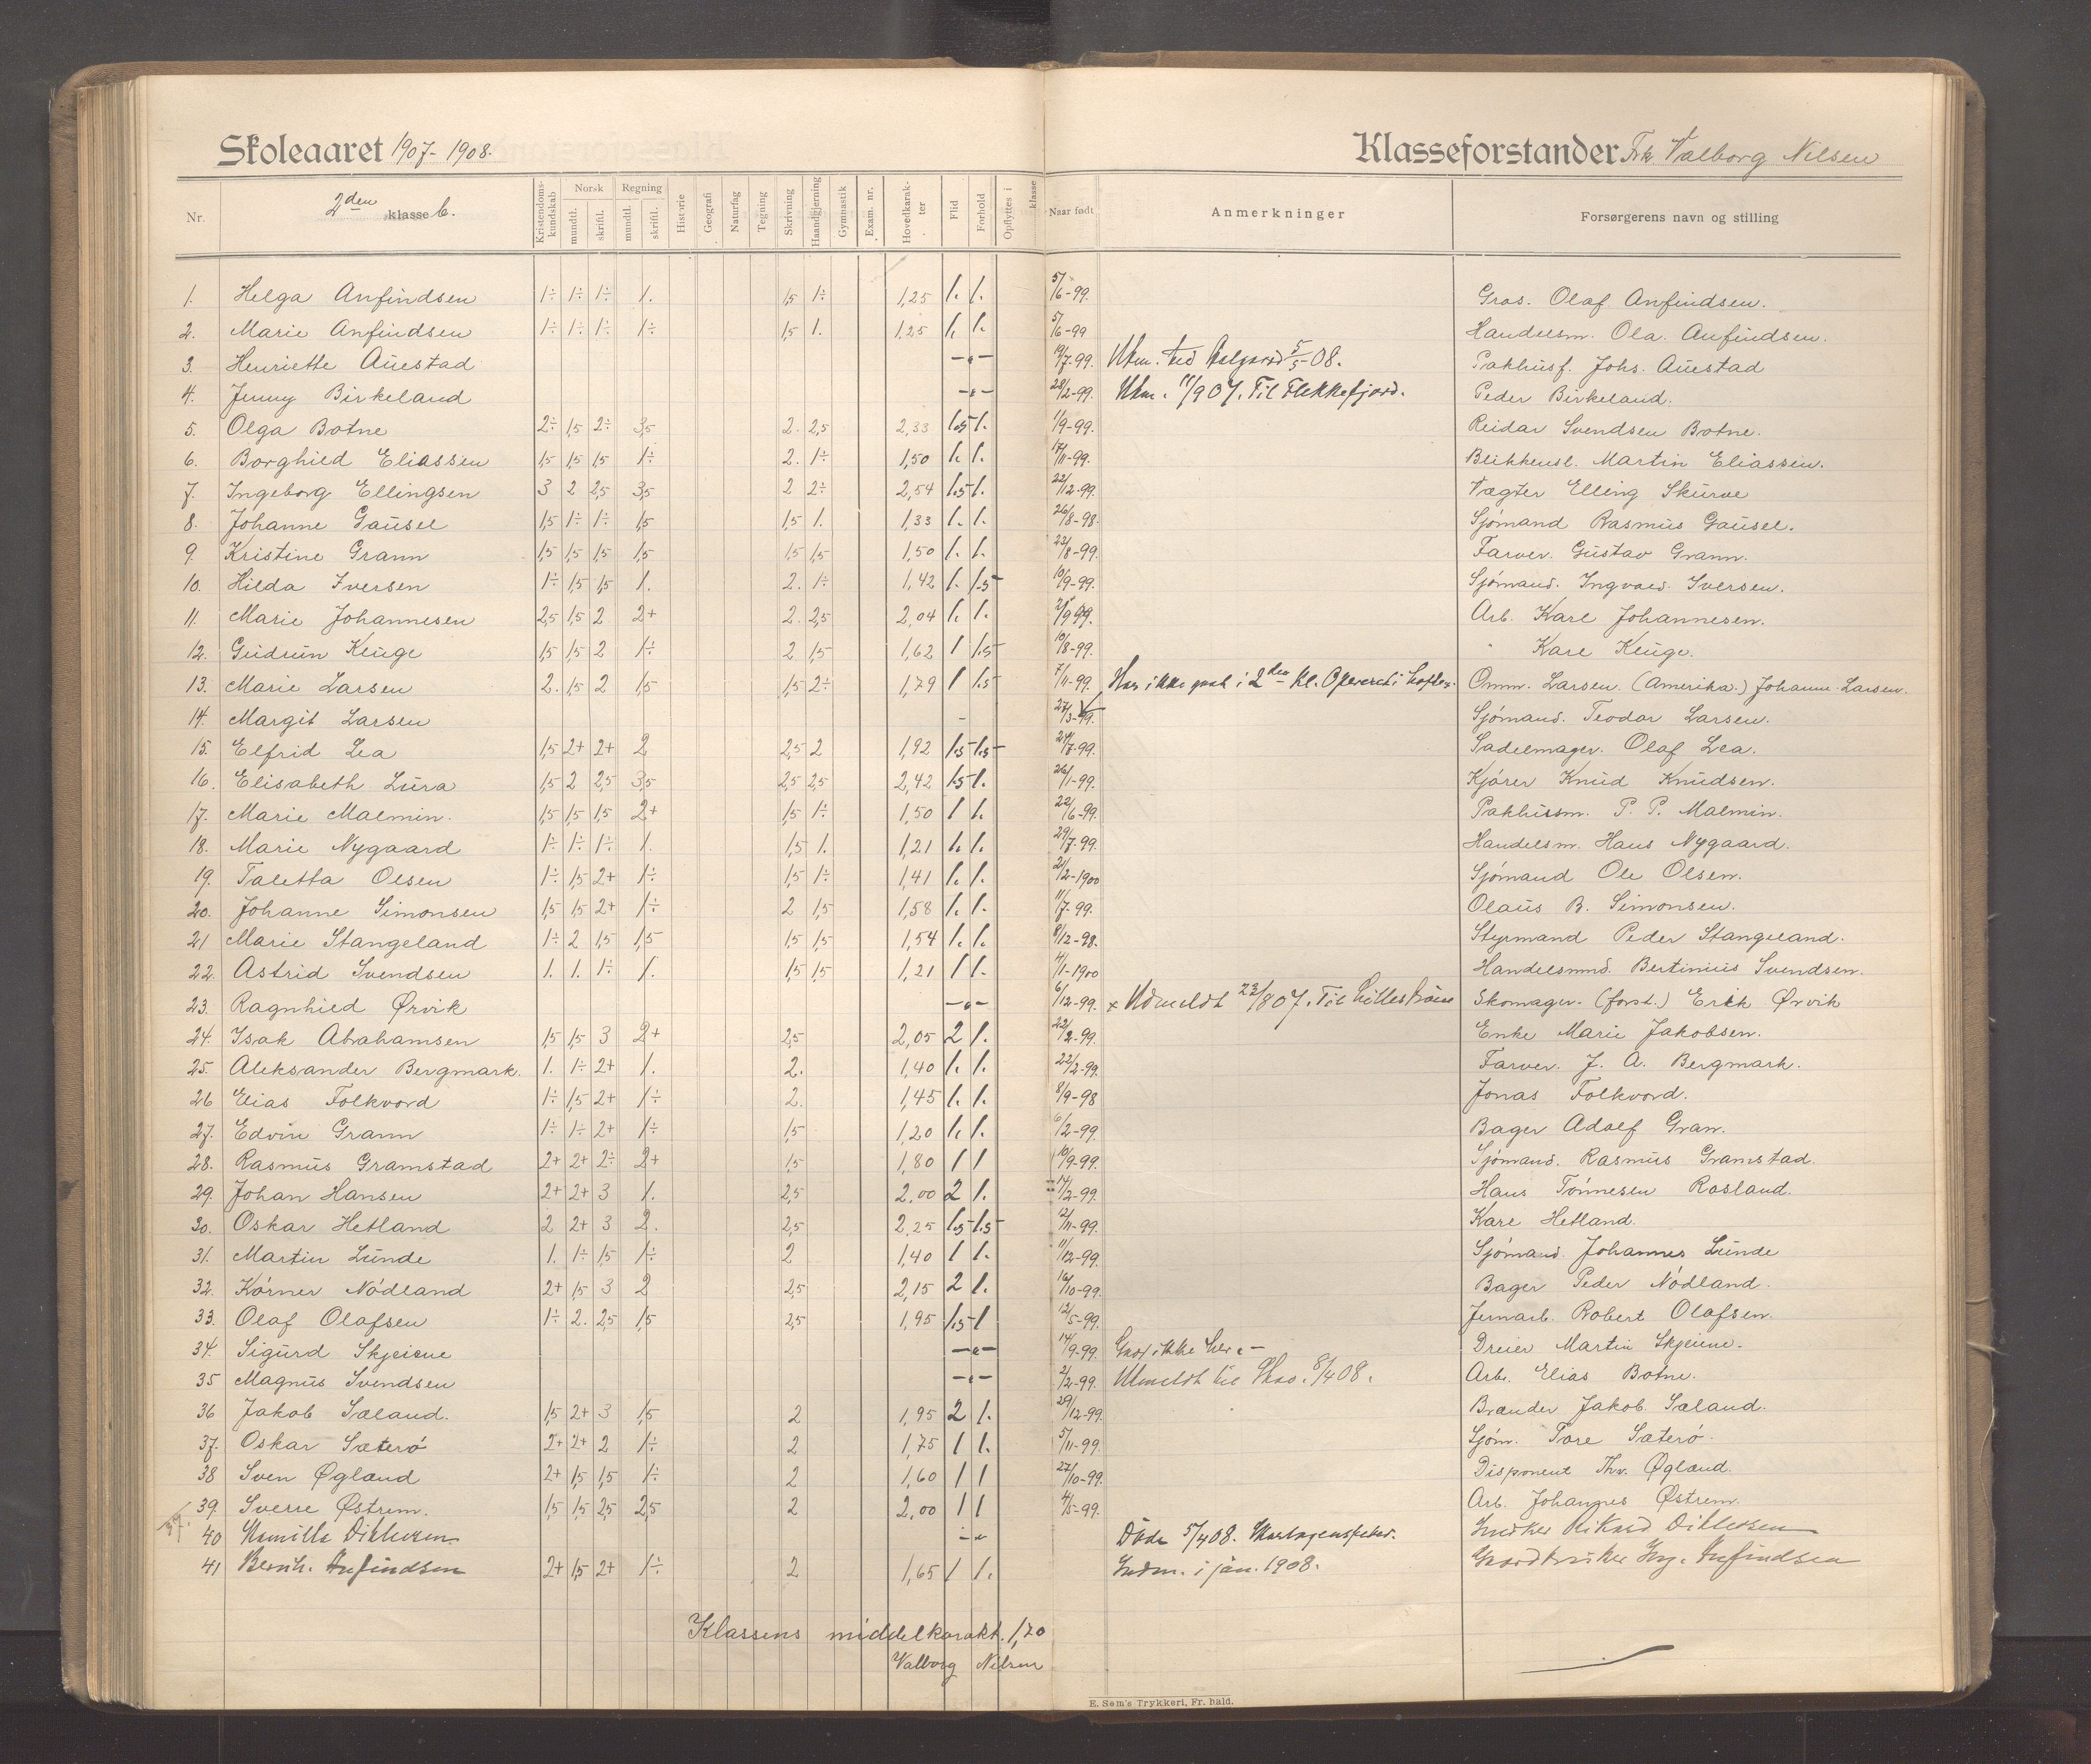 Skoleaaret 1907-1908.
Klasseforstander Frk. Valborg Nilsen
Nr. 2den klasse b. Kristendomskundskab Norsk mundtl. skriftl. Regning mundtl. skriftl. Historie Geografi Naturfag Tegning Skrivning Haandgjerning Gymnastik Exam. nr. Hovedkarakter Flid Forhold Opflyttes i klasse Naar født Anmerkninger Forsørgerens navn og stilling
1. Helga Anfindsen 1÷ 1÷ 1÷ 1. 1,5 1÷ 1,25 1. 1. 5/6-99. Gros. Olaf Anfindsen.
2. Marie Anfindsen 1÷ 1÷ 1÷ 1÷ 1,5 1. 1,25 1. 1. 5/6-99 Handelsm. Ola. Anfindsen.
3. Henriette Auestad — „ — 19/7-99. Utm. 5/5-08. Pakhusf. Johs. Auestad
4. Jenny Birkeland — „ — 28/2-99. Utm. 11/9 07. Til Flekkefjord. Peder Birkeland.
5. Olga Botne 2÷ 1,5 2÷ 3,5 2. 2,5 2,33 1.5 1. 1/9-99. Reidar Svendsen Botne.
6. Borghild Eliassen 1,5 1,5 1,5 1÷ 2. 1÷ 1,50 1. 1. 17/11-99. Blikkensl. Martin Eliassen.
7. Ingeborg Ellingsen 3 2 2,5 3,5 2 2÷ 2,54 1.5 1. 22/12-99. Vægter Elling Skurve
8. Johanne Gausel 1,5 1÷ 1÷ 1,5 1,5 1. 1,33 1. 1. 26/8-98. Sjömand Rasmus Gausel.
9. Kristine Grann 1,5 1,5 1,5 1,5 1,5 1,5 1,50 1. 1. 23/8-99. Farver. Gustav Grann.
10. Hilda Iversen 1÷ 1,5 1,5 1. 2. 1÷ 1,42 1. 1.5 10/9-99. Sjömand. Ingvald Iversen.
11. Marie Johannesen 2,5 1,5 2 2+ 2. 2,5 2,04 1. 1. 2/9 99. Arb. Karl Johannesen.
12. Gudrun Kluge 1,5 1,5 2 1÷ 2 1,5 1,62 1 1.5 10/8-99. " Karl Kluge.
13. Marie Larsen 2. 1,5 2 1,5 1,5 2÷ 1,79 1 1.5 7/11-99. Har ikke gaat i 2den Kl. Omm. Larsen. (Amerika.) Johanne Larsen.
14. Margit Larsen - 27/3-99. Sjömand. Teodor Larsen.
15. Elfrid Lea 1,5 2+ 2+ 2 2,5 2 1,92 1.5 1.5 24/7-99. Sadelmager. Olaf Lea.
16. Elisabeth Lura 1,5 2 2,5 3,5 2,5 2,5 2,42 1.5 1. 26/1-99. Kjörer Knud Knudsen.
17. Marie Malmin. 1,5 1,5 1,5 2+ 1,5 1÷ 1,50 1 1. 22/6-99. Pakhusm. P. P. Malmin.
18. Marie Nygaard 1÷ 1÷ 1÷ 1. 1,5 1. 1,21 1. 1. 29/7-99. Handelsm. Hans Nygaard.
19. Taletta Olsen 1÷ 1,5 2+ 1÷ 1,5 1÷ 1,41 1. 1. 21/2-1900 Sjömand Ole Olsen.
20. Johanne Simonsen 1,5 1,5 2+ 1÷ 2 1,5 1,58 1. 1. 11/7-99. Olaus B. Simonsen.
21 Marie Stangeland 1÷ 2 1,5 1,5 1,5 1,5 1,54 1. 1. 8/12-98. Styrmand Peder Stangeland.
22. Astrid Svendsen 1. 1. 1÷ 1. 1,5 1,5 1,21 1 1. 4/1-1900 Handelsmnd. Bertinius Svendsen.
23. Ragnhild Ørvik — „ — 6/12-99. × Udmeldt 22/8 07. Til Lillestrøm Skomager. (forst.) Erik Ørvik
24. Isak Abrahamsen 1,5 1,5 3 2+ 2,5 2,05 2 1. 22/2-99. Enke Marie Jakobsen.
25. Aleksander Bergmark. 1. 1÷ 2+ 1. 2. 1,40 1. 1. 22/2-99. Farver. J. A. Bergmark.
26 Elias Folkvord 1÷ 1,5 2+ 1÷ 2. 1,45 1. 1. 8/9-98 Jonas Folkvord.
27. Edvin Grann 1÷ 1÷ 2+ 1÷ 1,5 1,20 1. 1. 6/2-99. Bager Adolf Gran.
28. Rasmus Gramstad 2+ 2+ 2÷ 2+ 1,5 1,80 1 1 10/9-99. Sjömand. Rasmus Gramstad.
29. Johan Hansen 2+ 2+ 3 1. 2,5 2,00 2 1. 14/2-99. Hans Tönnesen Rosland.
30. Oskar Hetland 2 2+ 3 2. 2,5 2,25 1.5 1.5 2/11-99. Karl Hetland.
31. Martin Lunde 1. 1÷ 1,5 1÷ 2 1,40 1 1. 11/12-99. Sjömand. Johannes Lunde
32. Körner Nödland 2+ 1,5 3 2 2,5 2,15 2 1. 16/10-99. Bager Peder Nödland.
33. Olaf Olafsen 1÷ 2. 2,5 1,5 2,5 1,95 1.5 1 12/5-99. Jernarb. Robert Olafsen.
34. Sigurd Skjeine — „ — 14/9-99. ikke her. Dreier Martin Skjeine.
35 Magnus Svendsen — „ — 2/2-99. Utmeldt 8/4 08. Arb. Elias Botne.
36 Jakob Sæland. 1,5 2+ 3 1,5 2 1,95 2 1. 29/12-99. Brænder Jakob Sæland.
37. Oskar Sæterö 2+ 2+ 2 1÷ 2 1,75 1 1. 5/11-99. Sjöm. Tore Sæterö.
38 Sven Øgland 2+ 1,5 1,5 1÷ 2 1,60 1 1 27/10-99. Disponent Thv. Øgland.
39. Sverre Østrem. 1,5 1,5 2,5 2,5 2 2,00 1 1 4/5-99. Arb. Johannes Østrem.
40 Kamilla Ditlefsen - „ Döde 5/4 08. Skarlagensfeber. Rikard Ditlefsen
41 Bernh. Anfindsen 2+ 1,5 2+ 1÷ 2 1,65 1 1. Indm. i jan. 1908. Gaardbruker Ing. Anfindsen
Klassens middelkarakt. 1,70
Valborg Nilsen
E. Sem's Trykkeri, Fr. hald.